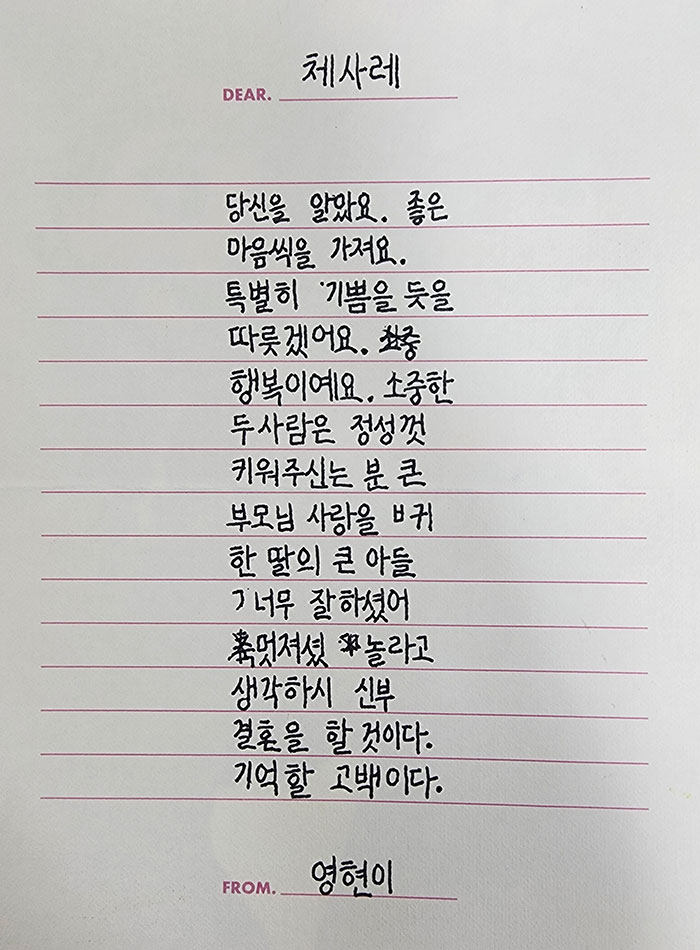 DEAR. 체사레
당신을 알았요. 좋은
마음씩을 가져요.
특별히 기쁨을 듯을
따릇겠어요. 중
행복이예요. 소중한
두사람은 정성껏
키워주신는 분 큰
부모님 사랑을 ㅂ귀
한 딸의 큰 아들
ㄱ너무 잘하셨어
멋져셨 놀라고
생각하시 신부
결혼을 할 것이다.
기억할 고백이다.
FROM. 영현이